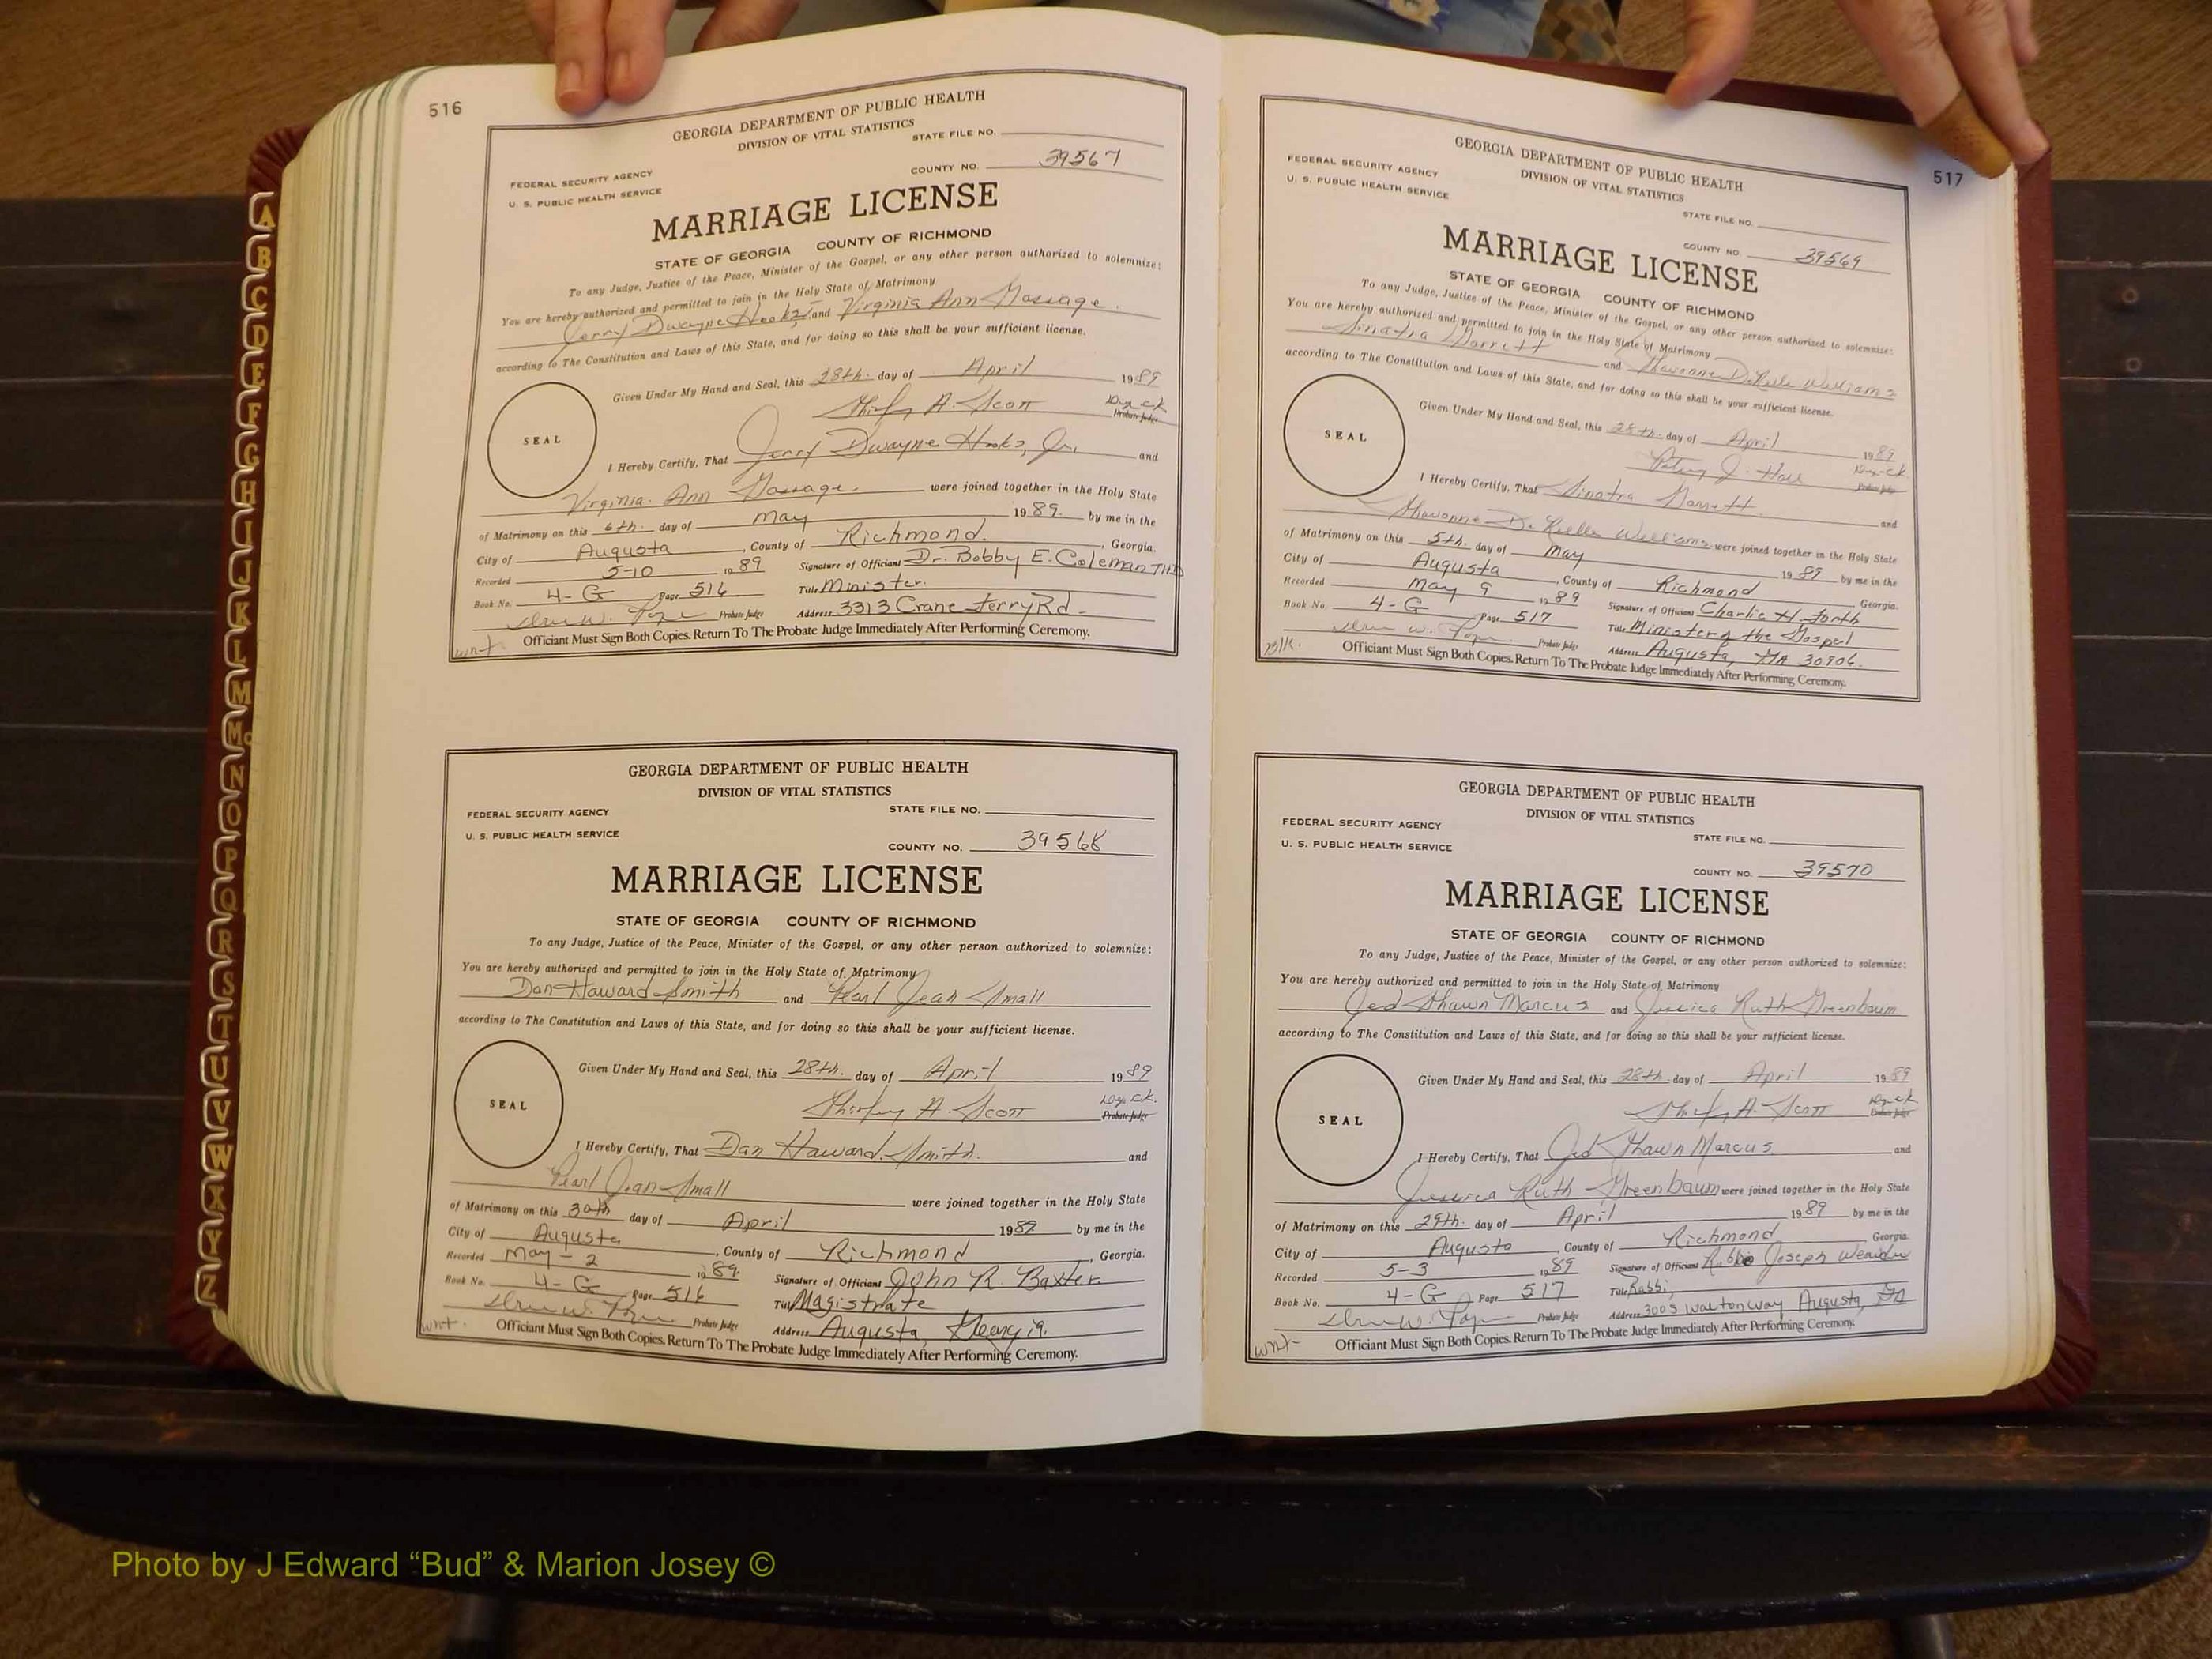 516
GEORGIA DEPARTMENT OF PUBLIC HEALTH
DIVISION OF VITAL STATISTICS
STATE FILE NO.
FEDERAL SECURITY AGENCY
U. S. PUBLIC HEALTH SERVICE
COUNTY NO. 39567
MARRIAGE LICENSE
STATE OF GEORGIA COUNTY OF RICHMOND
To any Judge, Justice of the Peace, Minister of the Gospel, or any other person authorized to solemnize:
You are hereby authorized and permitted to join in the Holy State of Matrimony
Jerry Dwayne Hooks, and Virginia Ann
according to The Constitution and Laws of this State, and for doing so this shall be your sufficient license.
Given Under My Hand and Seal, this 28th. day of April 1989
Shirley A. Scott Dep ck
Probate Judge
SEAL
I Hereby Certify, That Jerry Dwayne Hooks, Jr. and
Virginia Ann were joined together in the Holy State
of Matrimony on this 6th. day of May 1989. by me in the
City of Augusta, County of Richmond. Georgia.
Recorded 5-10 1989 Signature of Officiant Dr. Bobby E. Coleman THD
Book No. 4-G Page 516 Title Minister.
Probate Judge Address 3313 Crane Ferry Rd
wht. Officiant Must Sign Both Copies. Return To The Probate Judge Immediately After Performing Ceremony.
GEORGIA DEPARTMENT OF PUBLIC HEALTH
DIVISION OF VITAL STATISTICS
FEDERAL SECURITY AGENCY
STATE FILE NO.
U. S. PUBLIC HEALTH SERVICE
COUNTY NO. 39568
MARRIAGE LICENSE
STATE OF GEORGIA COUNTY OF RICHMOND
To any Judge, Justice of the Peace, Minister of the Gospel, or any other person authorized to solemnize:
You are hereby authorized and permitted to join in the Holy State of Matrimony
Dan Haward Smith and Pearl Jean Small
according to The Constitution and Laws of this State, and for doing so this shall be your sufficient license.
Given Under My Hand and Seal, this 28th. day of April 1989
Shirley A. Scott Dep ck.
Probate Judge
SEAL
I Hereby Certify, That Dan Haward Smith. and
Pearl Jean Small were joined together in the Holy State
of Matrimony on this 30th day of April 1989 by me in the
City of Augusta, County of Richmond, Georgia.
Recorded May - 2 1989. Signature of Officiant John R. Baxter
Book No. 4-G Page 516 Title Magistrate
Probate Judge Address Augusta, Georgia.
wht. Officiant Must Sign Both Copies. Return To The Probate Judge Immediately After Performing Ceremony.
517
GEORGIA DEPARTMENT OF PUBLIC HEALTH
DIVISION OF VITAL STATISTICS
FEDERAL SECURITY AGENCY
U. S. PUBLIC HEALTH SERVICE
STATE FILE NO.
COUNTY NO. 39569
MARRIAGE LICENSE
STATE OF GEORGIA COUNTY OF RICHMOND
To any Judge, Justice of the Peace, Minister of the Gospel, or any other person authorized to solemnize:
You are hereby authorized and permitted to join in the Holy State of Matrimony
Sinatra Garrett and Williams
according to The Constitution and Laws of this State, and for doing so this shall be your sufficient license.
Given Under My Hand and Seal, this 28th. day of April 1989
J. Dep-ck
Probate Judge
SEAL
I Hereby Certify, That Sinatra Garrett. and
Williams were joined together in the Holy State
of Matrimony on this 5th. day of May 1989 by me in the
City of Augusta, County of Richmond Georgia.
Recorded May 9 1989 Signature of Officiant Charlie H. Forth
Book No. 4-G Page 517 Title Minister of the Gospel
Probate Judge Address Augusta, GA 30906.
Blk. Officiant Must Sign Both Copies. Return To The Probate Judge Immediately After Performing Ceremony.
GEORGIA DEPARTMENT OF PUBLIC HEALTH
DIVISION OF VITAL STATISTICS
FEDERAL SECURITY AGENCY
STATE FILE NO.
U. S. PUBLIC HEALTH SERVICE
COUNTY NO. 39570
MARRIAGE LICENSE
STATE OF GEORGIA COUNTY OF RICHMOND
To any Judge, Justice of the Peace, Minister of the Gospel, or any other person authorized to solemnize:
You are hereby authorized and permitted to join in the Holy State of Matrimony
Jed Shawn Marcus and Jessica Ruth Greenbaum
according to The Constitution and Laws of this State, and for doing so this shall be your sufficient license.
Given Under My Hand and Seal, this 28th day of April 1989
Shirley A. Scott Dep ck
Probate Judge
SEAL
I Hereby Certify, That Jed Shawn Marcus and
Jessica Ruth Greenbaum were joined together in the Holy State
of Matrimony on this 29th. day of April 1989 by me in the
City of Augusta, County of Richmond Georgia.
Recorded 5-3 1989 Signature of Officiant Joseph
Book No. 4-G Page 517 Title Rabbi,
Probate Judge Address 3005 Walton way Augusta, Ga
wht- Officiant Must Sign Both Copies. Return To The Probate Judge Immediately After Performing Ceremony.
A
B
C
D
E
F
G
H
I
J
K
L
M
Mc
N
O
P
Q
R
S
T
U
V
W
X
Y
Z
Photo by J Edward “Bud” & Marion Josey ©